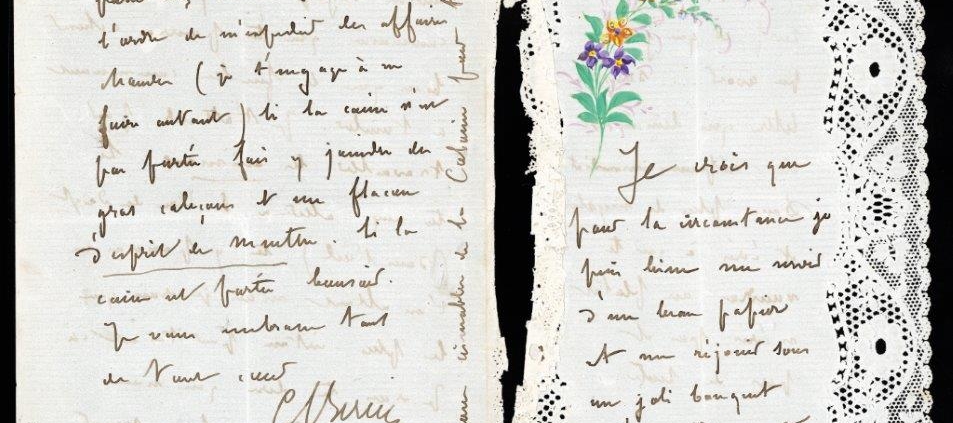 l'ordre de m'expédier des affaires
chaudes (je t'engage à en
faire autant) si la caisse n'est
pas partie fais y joindre des
gros caleçons et un flacon
d'esprit de menthe. Si la
caisse est partie bonsoir.
Je vous embrasse tout
de tout cœur
Je crois que
pour la circonstance je
puis bien me servir
d'un beau papier
et me réjouir sous
un joli bouquet